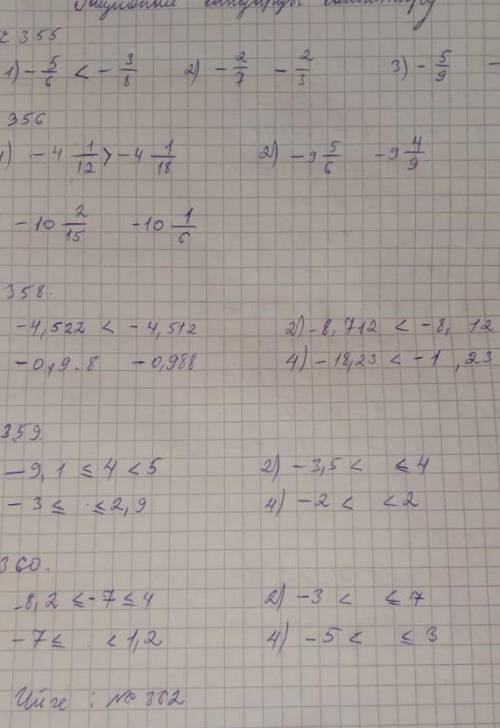 Рационал сандарды салыстыру
№ 355
1) -5/6 < -3/8 2) -2/7 -2/3 3) -5/9 -
356
1) -4 1/12 > -4 1/18 2) -9 5/6 -9 4/9
-10 2/15 -10 1/6
358.
-4,522 < -4,512 2) -8,712 < -8, 12
-0,9.8 -0,988 4) -18,23 < -1 ,23
359.
-9,1 ≤ 4 < 5 2) -3,5 < ≤ 4
-3 ≤ ≤ 2,9 4) -2 < < 2
360.
-8,2 ≤ -7 ≤ 4 2) -3 < ≤ 7
-7 ≤ < 1,2 4) -5 < ≤ 3
Үйге : № 362